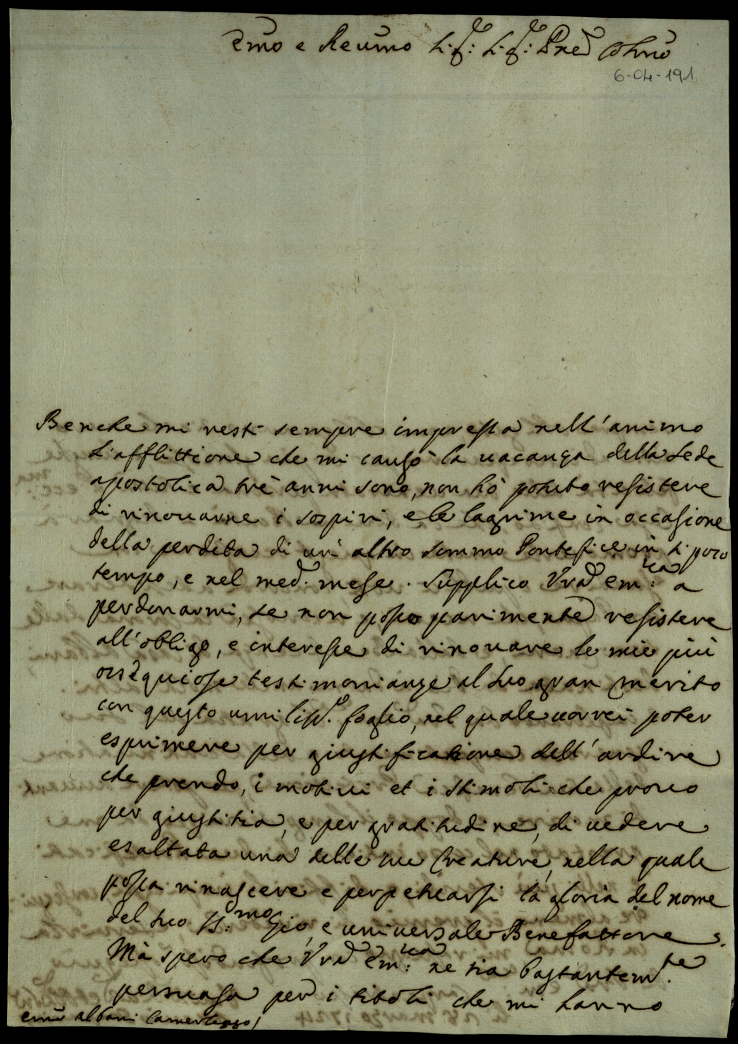 Emo e Reumo Sig.r Sig.r Pne Colmo
6-04-191
Benche mi resti sempre impressa nell'animo
L'afflittione che mi causò la uacanza della Sede
apostolica trè anni sono, non hò potuto resistere
di rinouarne i sospiri, e le lagrime in occasione
della perdita di un' altro sommo Pontefice in si poco
tempo, e nel med.o mese. Supplico Vra Em.za a
perdonarmi, se non posso parimente resistere
all'obligo, e interesse di rinouare le mie più
ossequiose testimonianze al suo gran merito
con questo umiliss.o foglio, nel quale uorrei poter
esprimere per giustificatione dell'ardire
che prendo, i motiui et i stimoli che prouo
per giustitia, e per gratitudine, di uedere
esaltata una delle sue Creature, nella quale
possa rinascere e perpetuarsi la gloria del nome
del suo SS.mo Zio, e uniuersale Benefattore.
Mà spero che Vra Em.za ne sia bastantem.te
persuasa per i titoli che mi hanno
Emo Albani Camerlengo